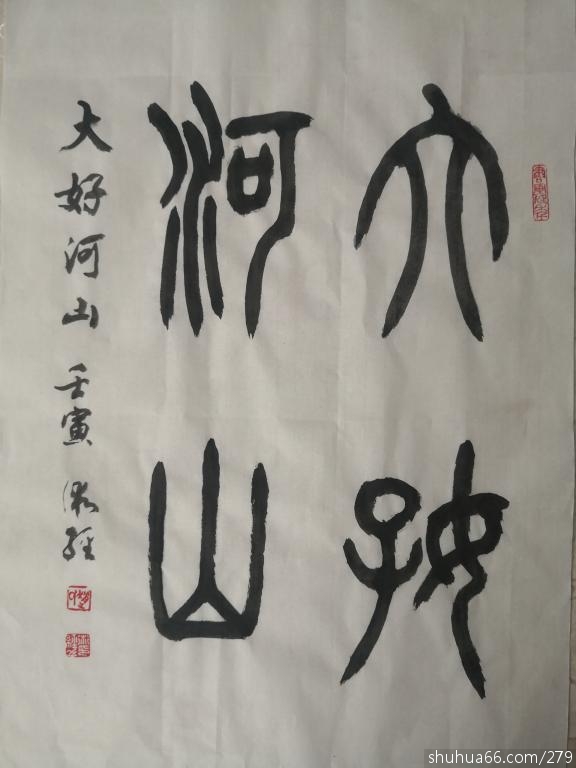 大好
河山
大好河山 壬寅
shuhua66.com/279